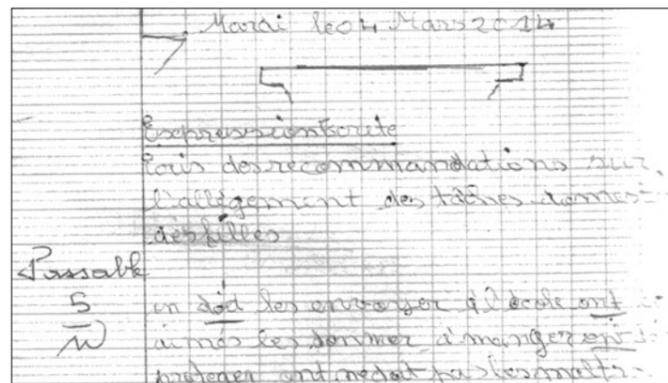 Mardi le 04 Mars 2014
Expression Ecrite
Ecris des recommandations sur
l'allégement des tâches domes-
des filles
Passable
5
en doit les envoyer à l'école ont
aimes les donner à manger ont
proteger ont ne doit pas les maltr-